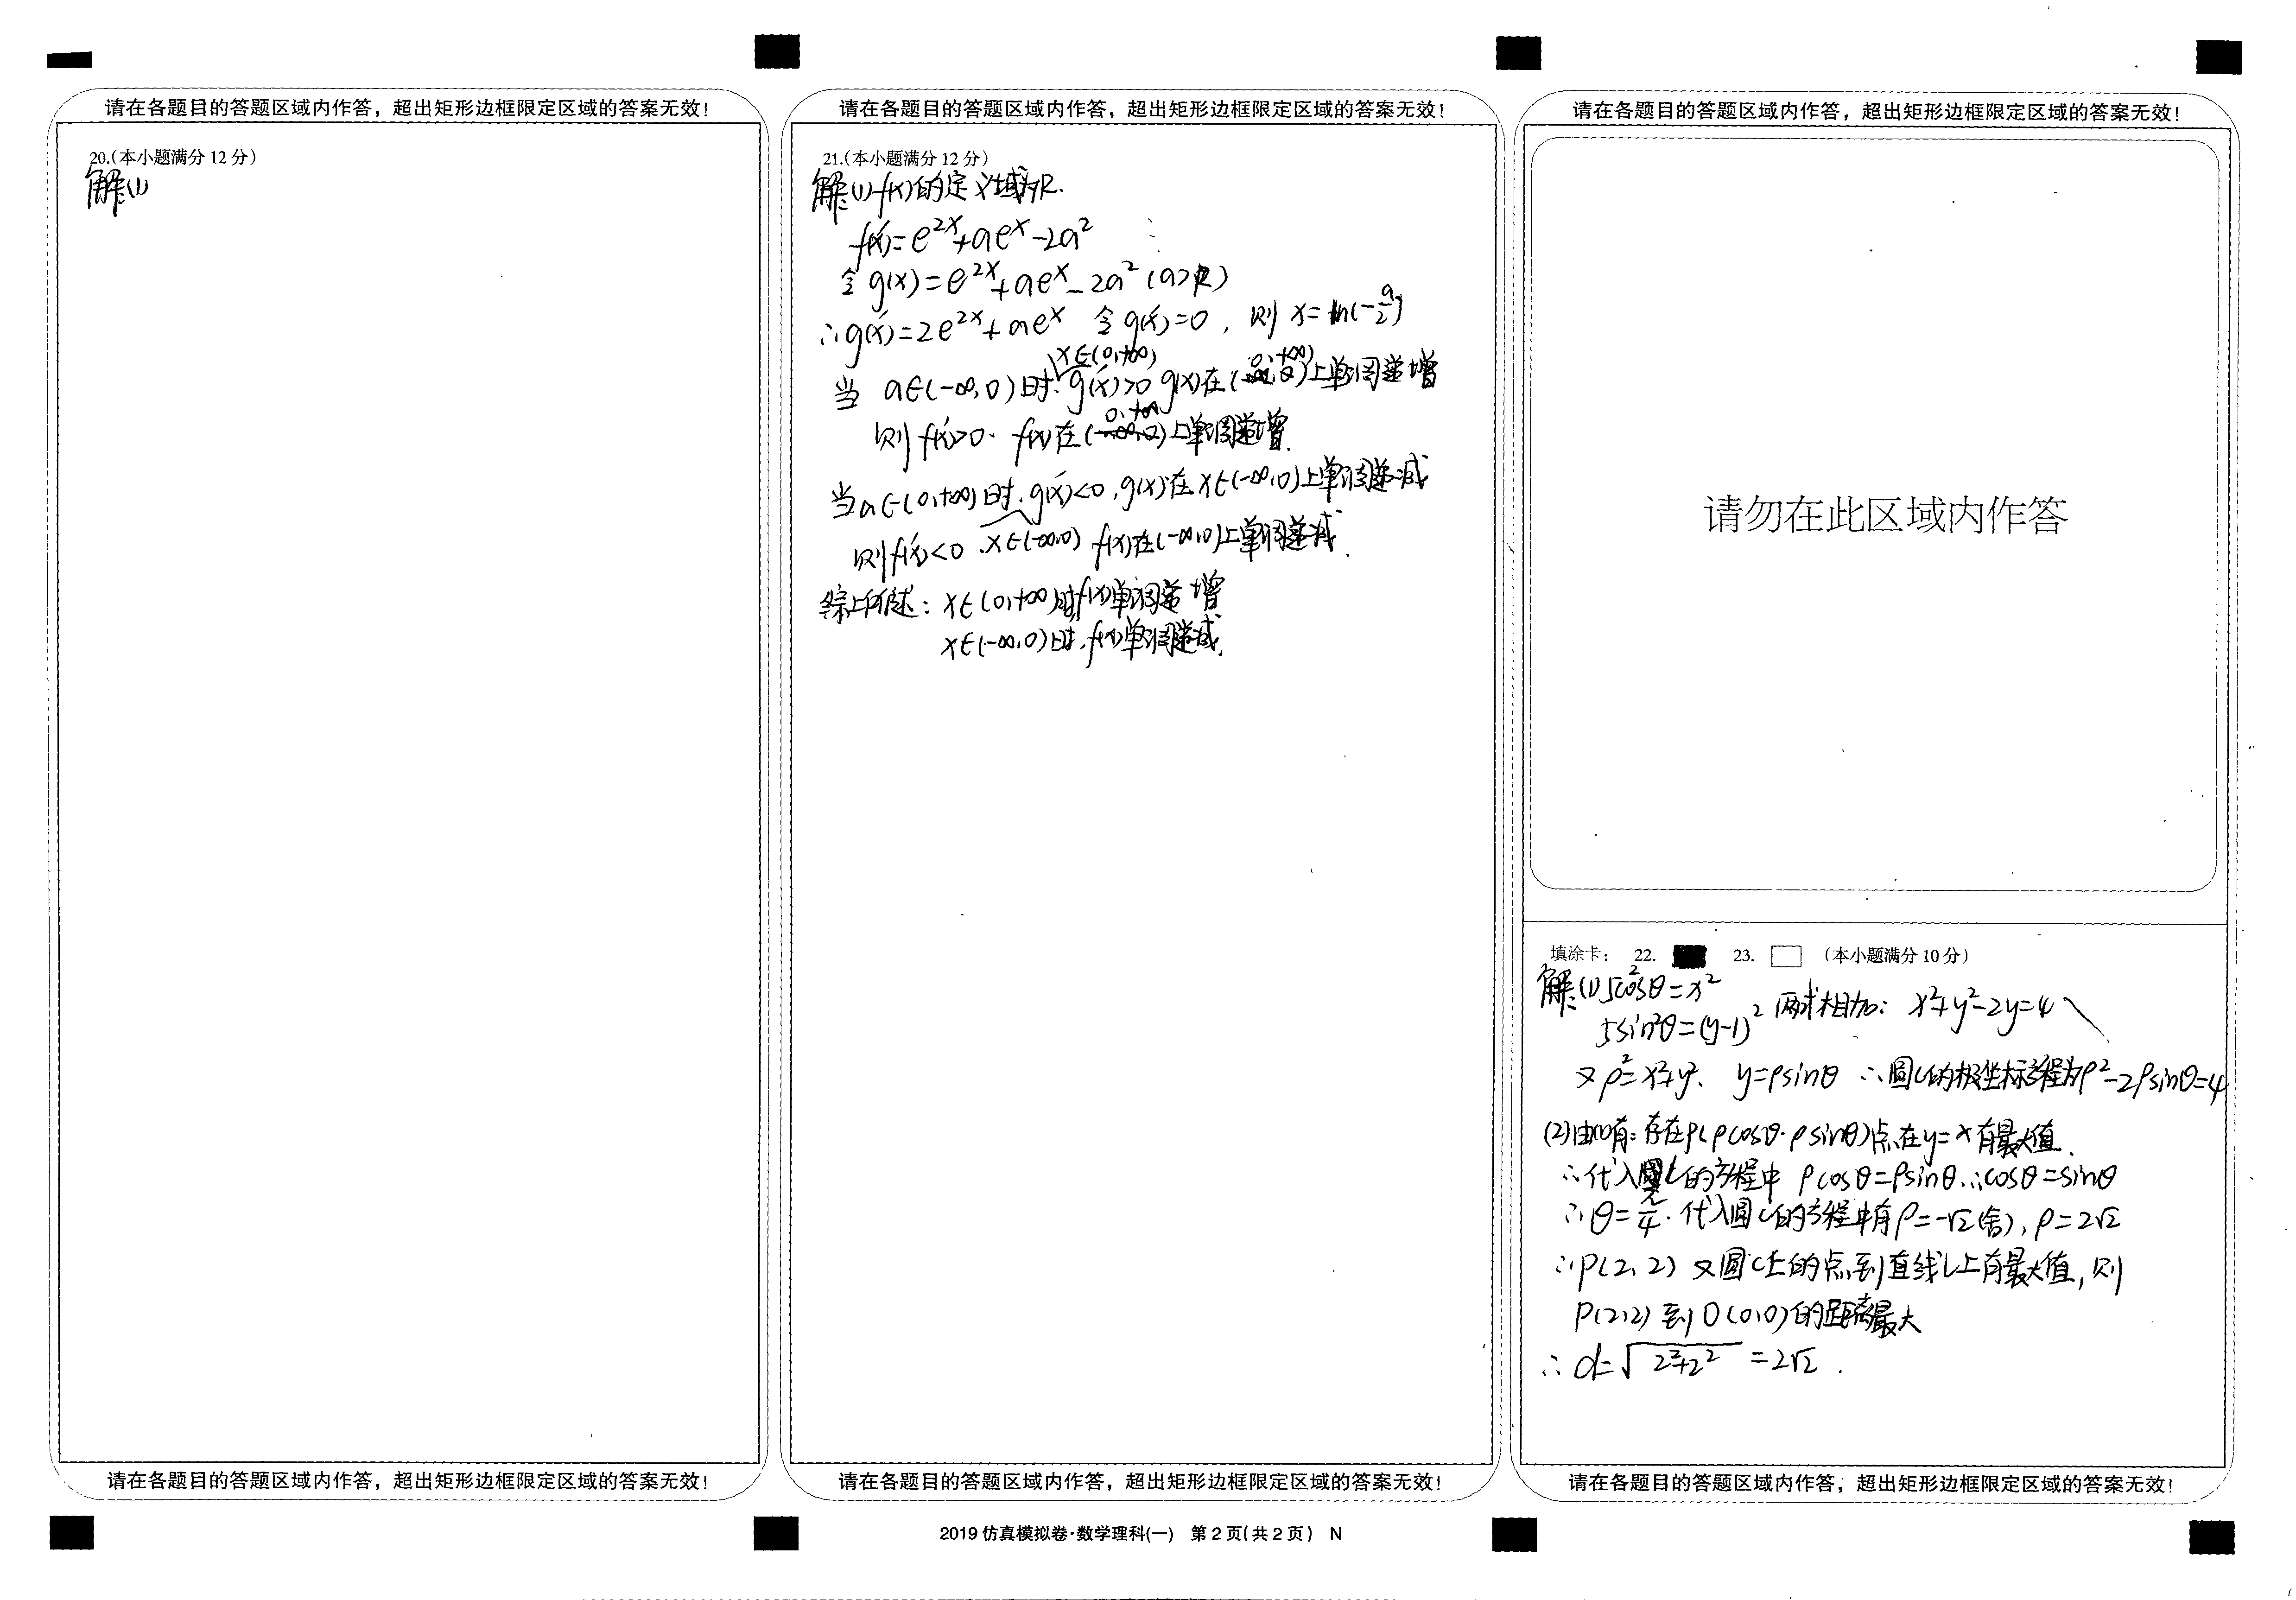 请在各题目的答题区域内作答，超出矩形边框限定区域的答案无效！
20.(本小题满分12分)
解:(1)
请在各题目的答题区域内作答，超出矩形边框限定区域的答案无效！
请在各题目的答题区域内作答，超出矩形边框限定区域的答案无效！
21.(本小题满分12分)
解:(1)f(x)的定义域为R.
f'(x)=e^{2x}+ae^x-2a²
令g(x)=e^{2x}+ae^x-2a²(a>R)
∴g'(x)=2e^{2x}+ae^x 令g'(x)=0,则x=ln(-a/2)
x∈(0,+∞) 0,+∞
当 a∈(-∞,0)时.g'(x)>0 g(x)在( )上单调递增
0,+∞
则f'(x)>0. f(x)在( )上单调递增.
当a∈(0,+∞)时.g'(x)<0,g(x)在x∈(-∞,0)上单调递减
则f'(x)<0.x∈(-∞,0) f(x)在(-∞,0)上单调递减.
综上所述:x∈(0,+∞)时f(x)单调递增
x∈(-∞,0)时,f(x)单调递减.
请在各题目的答题区域内作答，超出矩形边框限定区域的答案无效！
2019仿真模拟卷·数学理科(一) 第2页(共2页) N
请在各题目的答题区域内作答，超出矩形边框限定区域的答案无效！
请勿在此区域内作答
填涂卡： 22. 23. (本小题满分10分)
解:(1)5cos²θ=x²
5sin²θ=(y-1)² 两式相加: x²+y²-2y=4
又ρ²=x²+y². y=ρsinθ ∴圆C的极坐标方程为ρ²-2ρsinθ=4
(2)由(1)有:存在P(ρcosθ.ρsinθ)点在y=x有最大值.
∴代入圆C的方程中 ρcosθ=ρsinθ.∴cosθ=sinθ
∴θ=π/4.代入圆C的方程中有ρ=-√2(舍),ρ=2√2
∴P(2,2) 又圆C上的点到直线l上有最大值,则
P(2,2)到O(0,0)的距离最大
∴d=√(2²+2²)=2√2.
请在各题目的答题区域内作答；超出矩形边框限定区域的答案无效！